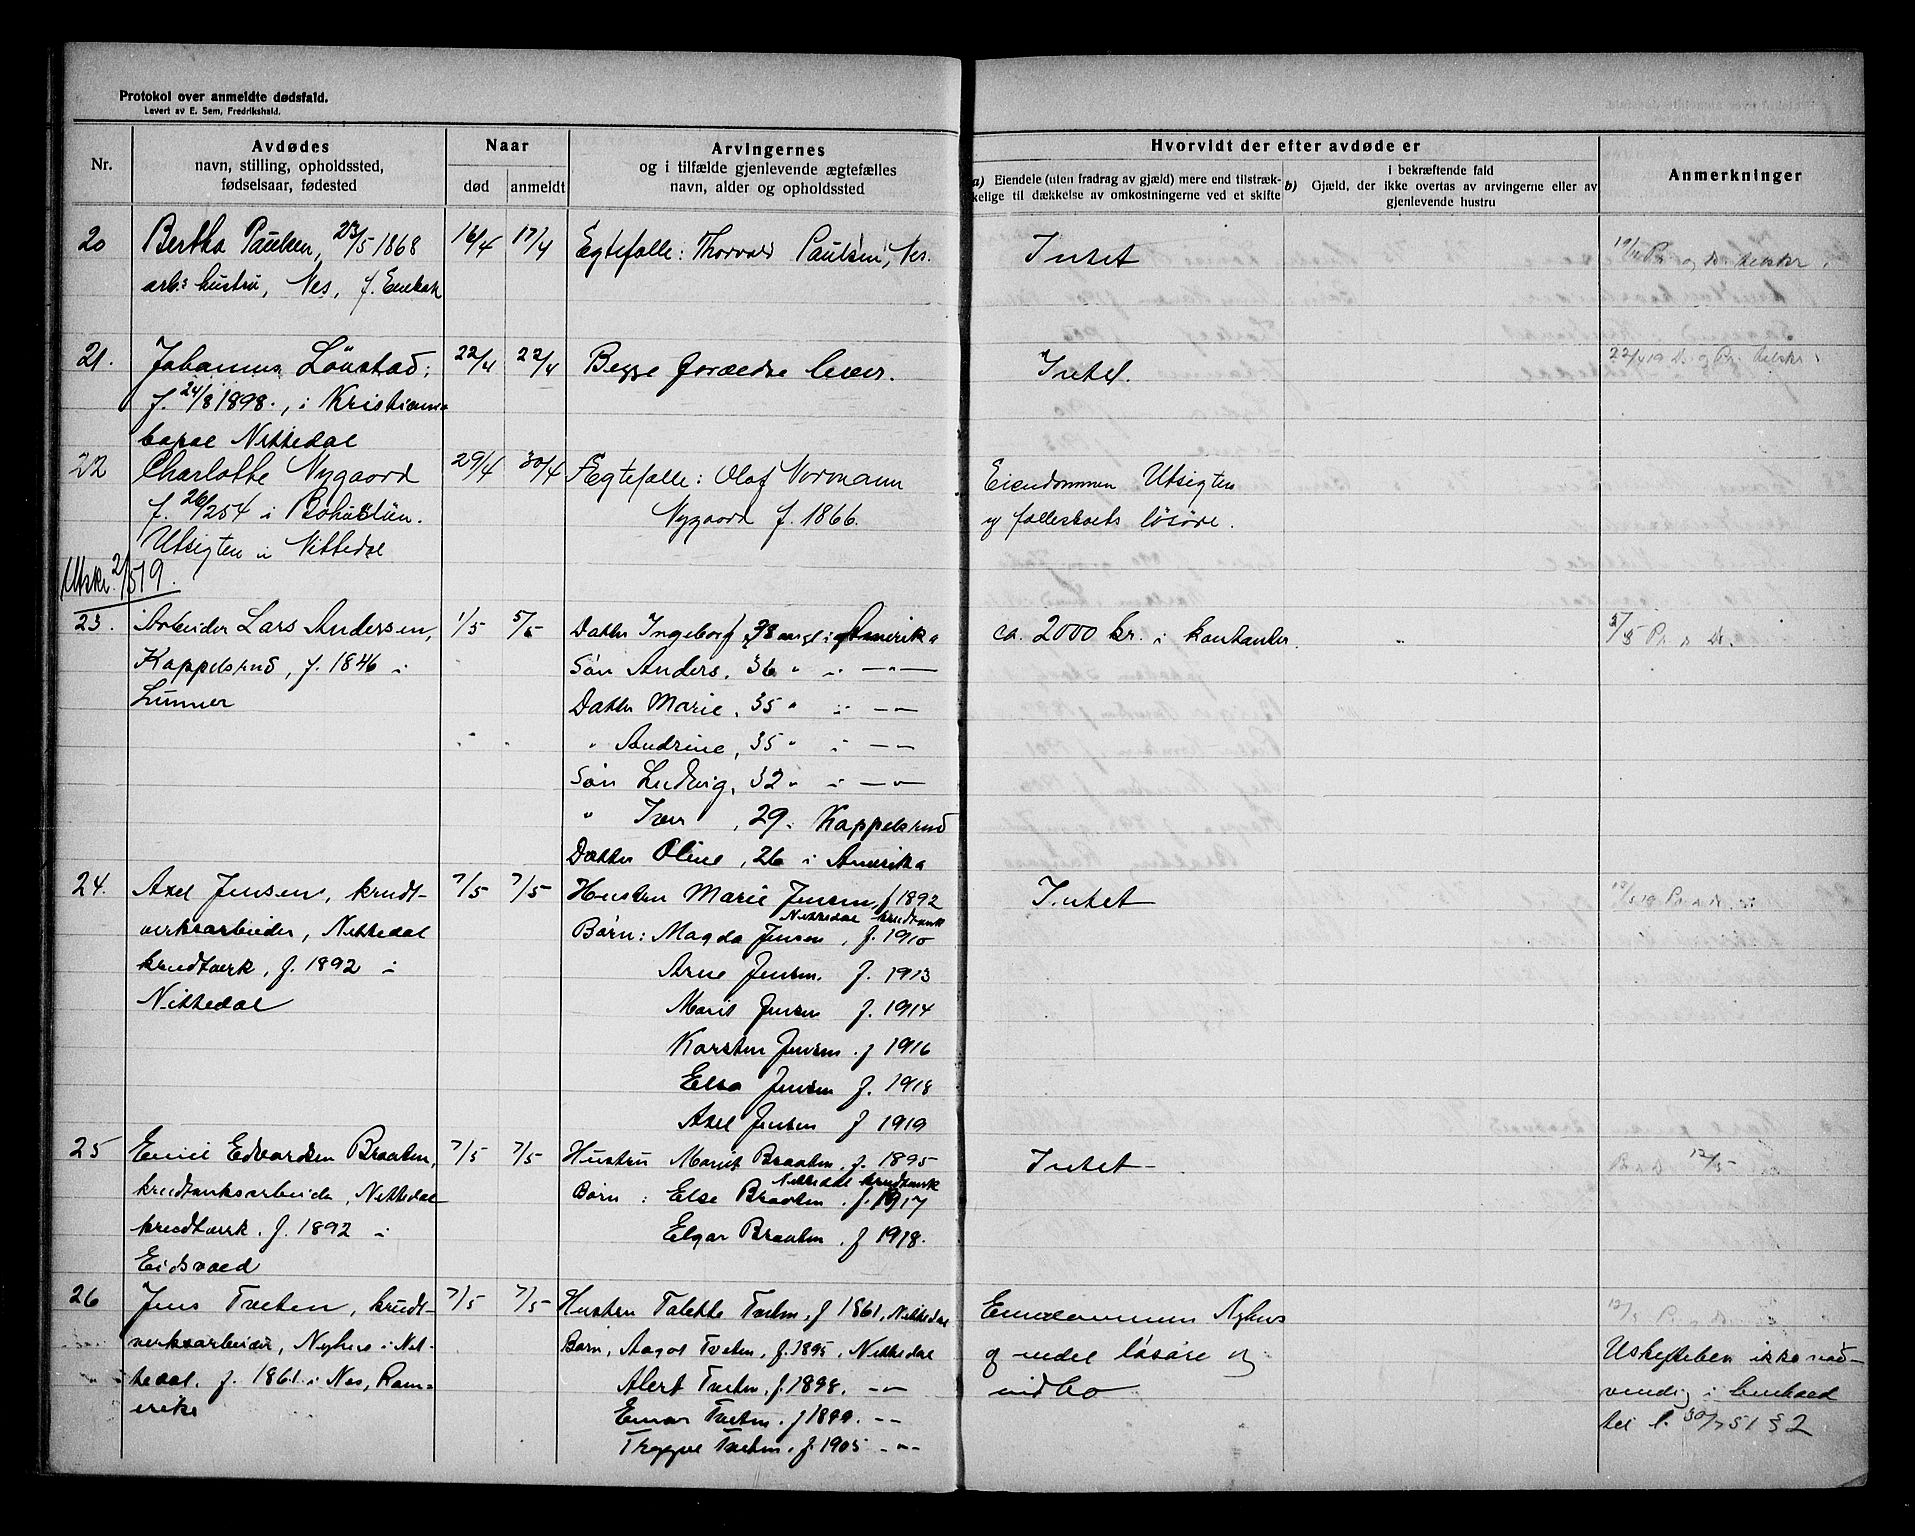 Protokol over anmeldte dødsfald.
Levert av E. Sem, Fredrikshald.
Nr.
Avdødes
navn, stilling, opholdssted,
fødselsaar, fødested
Naar
død
anmeldt
Arvingernes
og i tilfælde gjenlevende ægtefælles
navn, alder og opholdssted
Hvorvidt der efter avdøde er
a) Eiendele (uten fradrag av gjæld) mere end tilstræk-
kelige til dækkelse av omkostningerne ved et skifte
b) Gjæld, der i bekræftende fald
ikke overtas av arvingerne eller av
gjenlevende hustru
Anmerkninger
20 Bertha Paulsen, 23/5 1868 16/4 17/4 Egtefælle: Thorvald Paulsen, Nes. Intet
arb. hustru, Nes, f. Enebak
21. Johannes Lönstad: 22/4 22/4 Begge forældre lever. Intet.
f. 24/8 1898., i Kristian
Nittedal
22 Charlotte Nygaard 29/4 30/4 Ægtefælle: Olaf Normann Eiendommen Utsigten
f. 26/2 54 i Bohuslän. Nygaard f. 1866. og fælleskoets løsøre.
Utsigten i Nittedal
Utskr. 2/5 19.
23. Arbeider Lars Andersen, 1/5 5/5 Datter Ingeborg, 38 aar i Amerika ca. 2000 kr. i kontanter. 5/5 Pr. Ds.
Kappelsrud, f. 1846 i Søn Anders, 36 " i —"—
Lunner Datter Marie, 35 " i —"—
" Andrine, 35 " i —"—
Søn Ludvig, 32 " i —"—
" Iver, 29. Kappelsrud
Datter Oline, 26 i Amerika
24. Axel Jensen, krudt- 7/5 7/5 Hustru Marie Jensen, f 1892 Intet
Nittedal krudtværk
verksarbeider, Nittedal Børn: Magda Jensen, f. 1910
krudtværk, f. 1892 i Arne Jensen. f. 1913
Nittedal Marit Jensen f. 1914
Karsten Jensen. f 1916
Elsa Jensen f. 1918
Axel Jensen f 1919
25 Emil Edvardsen Braaten, 7/5 7/5 Hustru Marit Braaten. f. 1895 Intet 12/5
Nittedal krudtværk
krudtverksarbeider, Nittedal Børn: Else Braaten. f. 1917
krudtværk. f. 1892 i Elgar Braaten. f 1918.
Eidsvold
26 Jens Tveten, krudt- 7/5 7/5 Hustru Talette Tveten, f 1861, Nittedal Eiendommen Nyhus
verksarbeider, Nyhus i Nit- Børn, Aagot Tveten, f. 1895, Nittedal og endel løsøre og
tedal. f. 1861 i Nes, Rom- Alert Tveten, f. 1898. —"— indbo
erike Einar Tveten. f 1899. —"—
Tryggve Tveten. f. 1905 —"—
12/5
Uskifteben ikke nød-
vendig i henhold
til l. 30/7 51 § 2